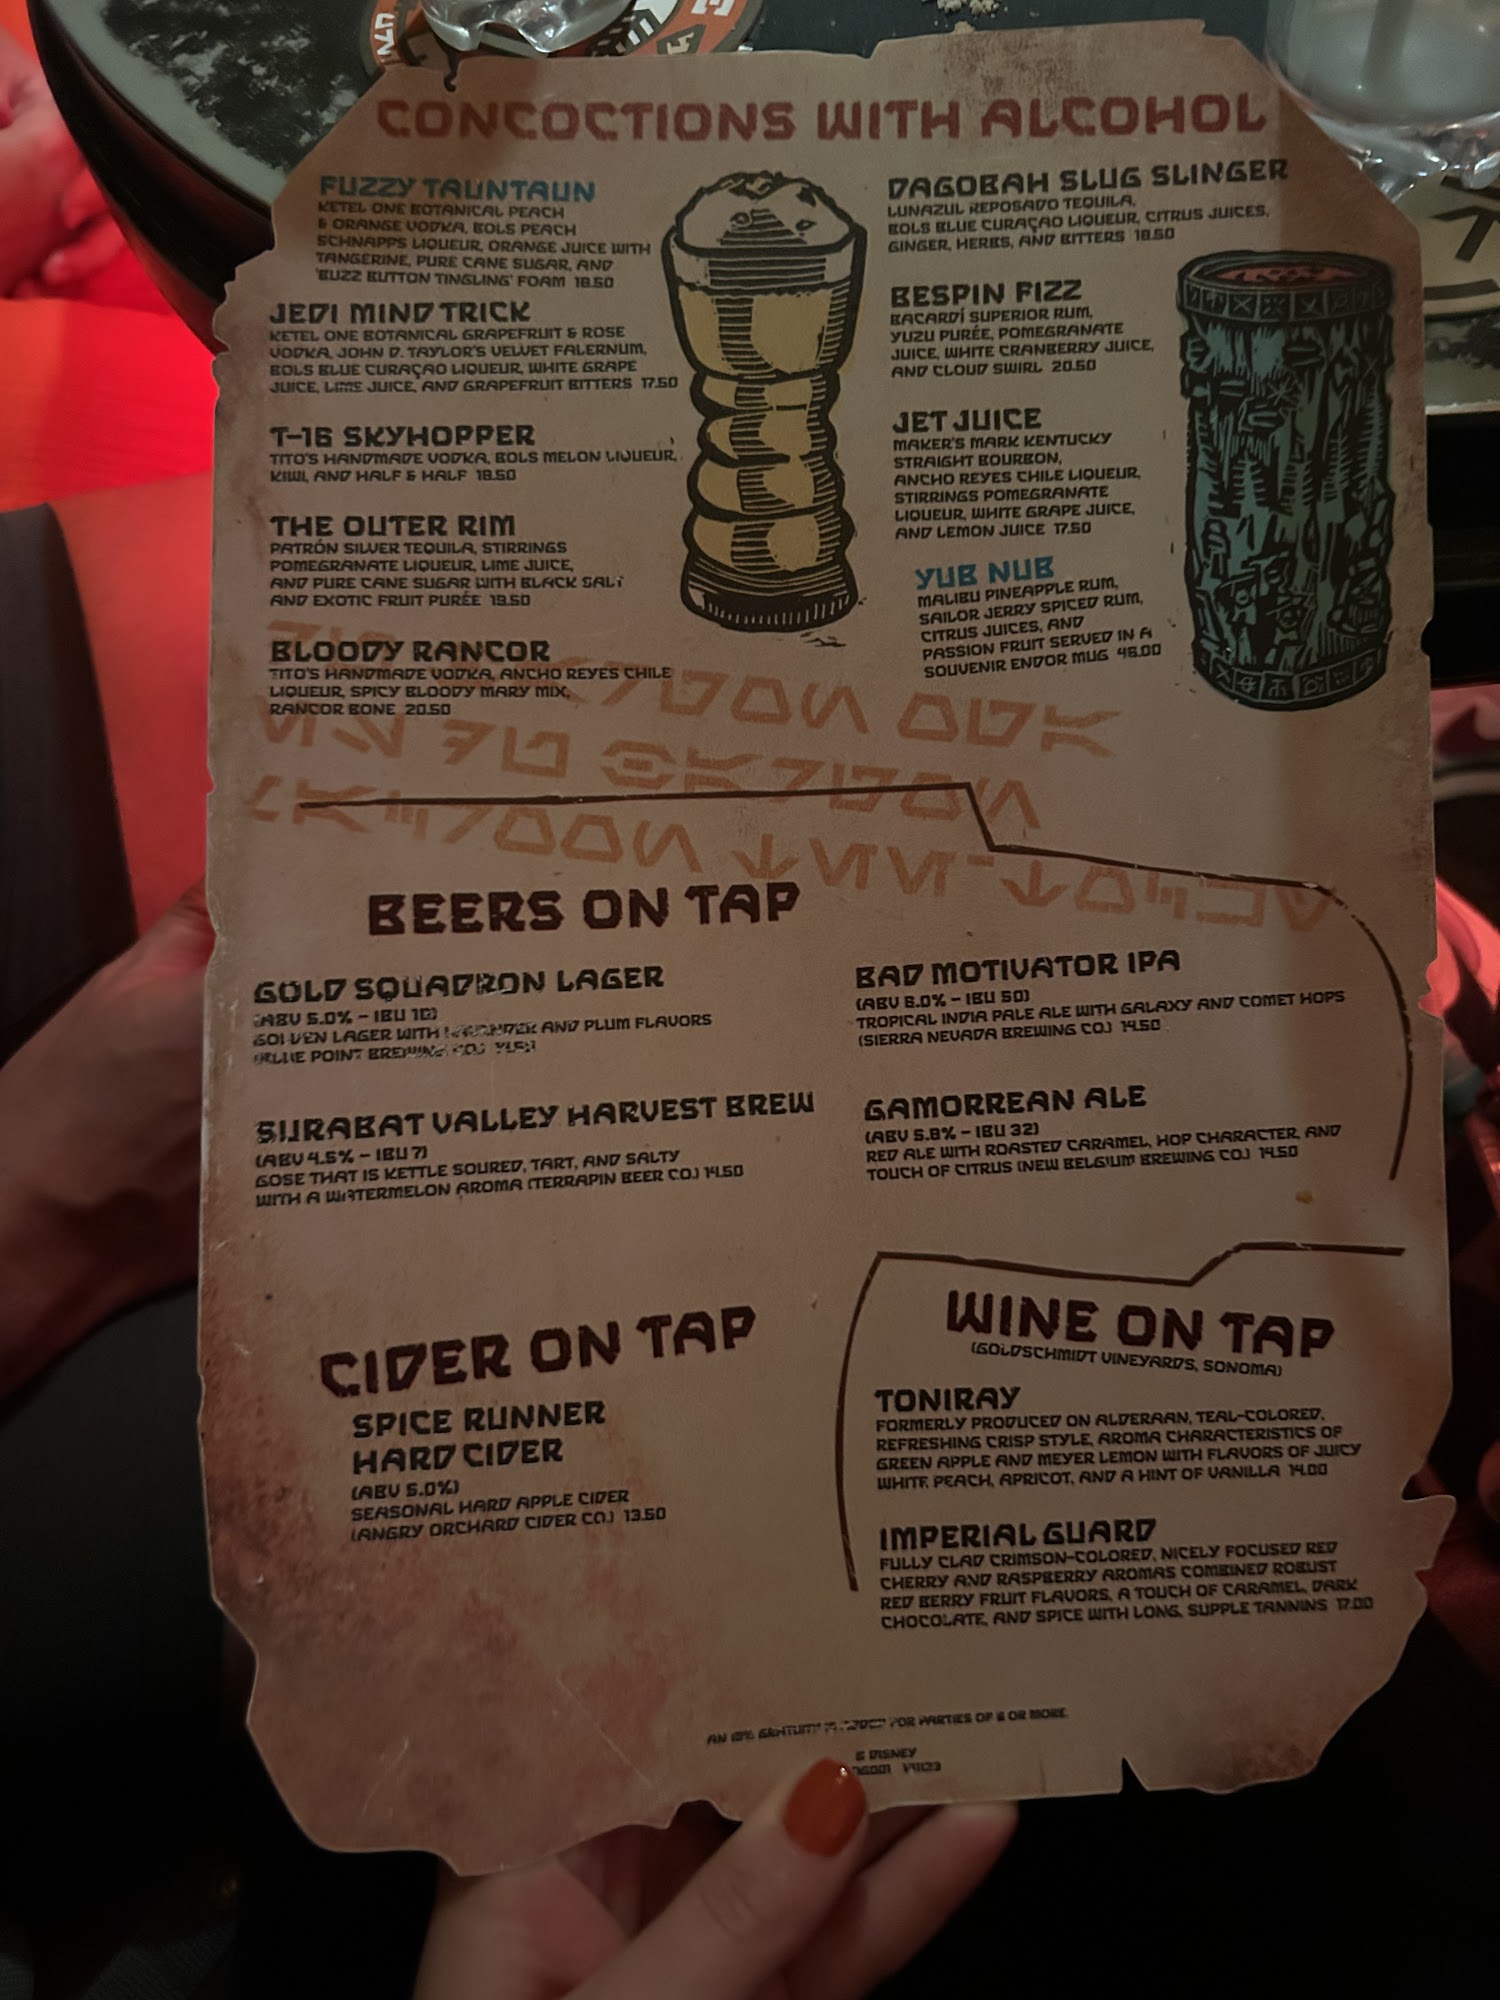 CONCOCTIONS WITH ALCOHOL
FUZZY TAUNTAUN
KETEL ONE BOTANICAL PEACH
& ORANGE VODKA, BOLS PEACH
SCHNAPPS LIQUEUR, ORANGE JUICE WITH
TANGERINE, PURE CANE SUGAR, AND
'BUZZ BUTTON TINGLING' FOAM 18.50
JEDI MIND TRICK
KETEL ONE BOTANICAL GRAPEFRUIT & ROSE
VODKA, JOHN D. TAYLOR'S VELVET FALERNUM,
BOLS BLUE CURAÇAO LIQUEUR, WHITE GRAPE
JUICE, LIME JUICE, AND GRAPEFRUIT BITTERS 17.50
T-16 SKYHOPPER
TITO'S HANDMADE VODKA, BOLS MELON LIQUEUR,
KIWI, AND HALF & HALF 18.50
THE OUTER RIM
PATRÓN SILVER TEQUILA, STIRRINGS
POMEGRANATE LIQUEUR, LIME JUICE,
AND PURE CANE SUGAR WITH BLACK SALT
AND EXOTIC FRUIT PURÉE 19.50
BLOODY RANCOR
TITO'S HANDMADE VODKA, ANCHO REYES CHILE
LIQUEUR, SPICY BLOODY MARY MIX,
RANCOR BONE 20.50
DAGOBAH SLUG SLINGER
LUNAZUL REPOSADO TEQUILA,
BOLS BLUE CURAÇAO LIQUEUR, CITRUS JUICES,
GINGER, HERBS, AND BITTERS 18.50
BESPIN FIZZ
BACARDÍ SUPERIOR RUM,
YUZU PURÉE, POMEGRANATE
JUICE, WHITE CRANBERRY JUICE,
AND CLOUD SWIRL 20.50
JET JUICE
MAKER'S MARK KENTUCKY
STRAIGHT BOURBON,
ANCHO REYES CHILE LIQUEUR,
STIRRINGS POMEGRANATE
LIQUEUR, WHITE GRAPE JUICE,
AND LEMON JUICE 17.50
YUB NUB
MALIBU PINEAPPLE RUM,
SAILOR JERRY SPICED RUM,
CITRUS JUICES, AND
PASSION FRUIT SERVED IN A
SOUVENIR ENDOR MUG
BEERS ON TAP
GOLD SQUADRON LAGER
(ABV 5.0% – IBU 10)
GOLDEN LAGER WITH AND PLUM FLAVORS
(BLUE POINT BREWING CO.)
SURABAT VALLEY HARVEST BREW
(ABV 4.5% – IBU 7)
GOSE THAT IS KETTLE SOURED, TART, AND SALTY
WITH A WATERMELON AROMA (TERRAPIN BEER CO.) 14.50
BAD MOTIVATOR IPA
(ABV 6.0% – IBU 50)
TROPICAL INDIA PALE ALE WITH GALAXY AND COMET HOPS
(SIERRA NEVADA BREWING CO.) 14.50
GAMORREAN ALE
(ABV 5.8% – IBU 32)
RED ALE WITH ROASTED CARAMEL, HOP CHARACTER, AND
TOUCH OF CITRUS (NEW BELGIUM BREWING CO.) 14.50
CIDER ON TAP
SPICE RUNNER
HARD CIDER
(ABV 5.0%)
SEASONAL HARD APPLE CIDER
(ANGRY ORCHARD CIDER CO.) 13.50
WINE ON TAP
(GOLDSCHMIDT VINEYARDS, SONOMA)
TONIRAY
FORMERLY PRODUCED ON ALDERAAN, TEAL-COLORED,
REFRESHING CRISP STYLE, AROMA CHARACTERISTICS OF
GREEN APPLE AND MEYER LEMON WITH FLAVORS OF JUICY
WHITE PEACH, APRICOT, AND A HINT OF VANILLA 14.00
IMPERIAL GUARD
FULLY CLAD CRIMSON-COLORED, NICELY FOCUSED RED
CHERRY AND RASPBERRY AROMAS COMBINED ROBUST
RED BERRY FRUIT FLAVORS, A TOUCH OF CARAMEL, DARK
CHOCOLATE, AND SPICE WITH LONG, SUPPLE TANNINS 17.00
AN 18% GRATUITY IS ADDED FOR PARTIES OF 8 OR MORE.
© DISNEY